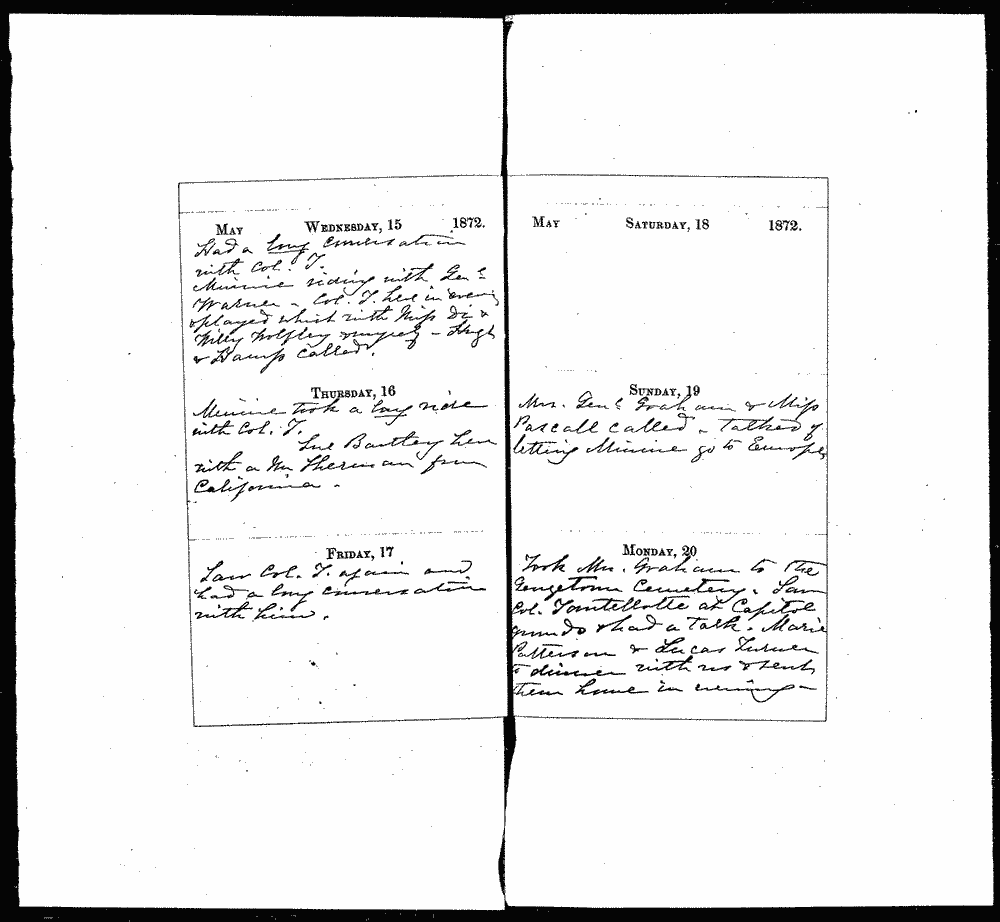 May Wednesday, 15 1872.
Had a long conversation
with Col. T.
Minnie riding with Genl
Warner - Col. T. here in evening
& played whist with Miss Di &
Willy & myself - Hugh
& Hamp called.
Thursday, 16
Minnie took a long ride
with Col. T.
Sue Bartley here
with a Mr Sherman from
California.
Friday, 17
Saw Col. T. again and
had a long conversation
with him.
May Saturday, 18 1872.
Sunday, 19
Mrs. Genl Graham & Miss
Pascall called - Talked of
letting Minnie go to Europe,
Monday, 20
Took Mrs. Graham to the
Georgetown Cemetery. Saw
Col. at Capitol
grounds & had a talk. Marie
Patterson & Lucas Turner
to dinner with us & sent
them home in evening -